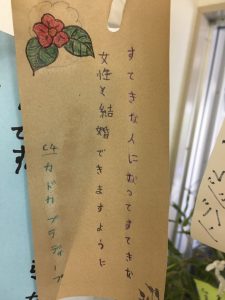 すてきな人になってすてきな
女性と結婚できますように
C4 カドカ プラディープ